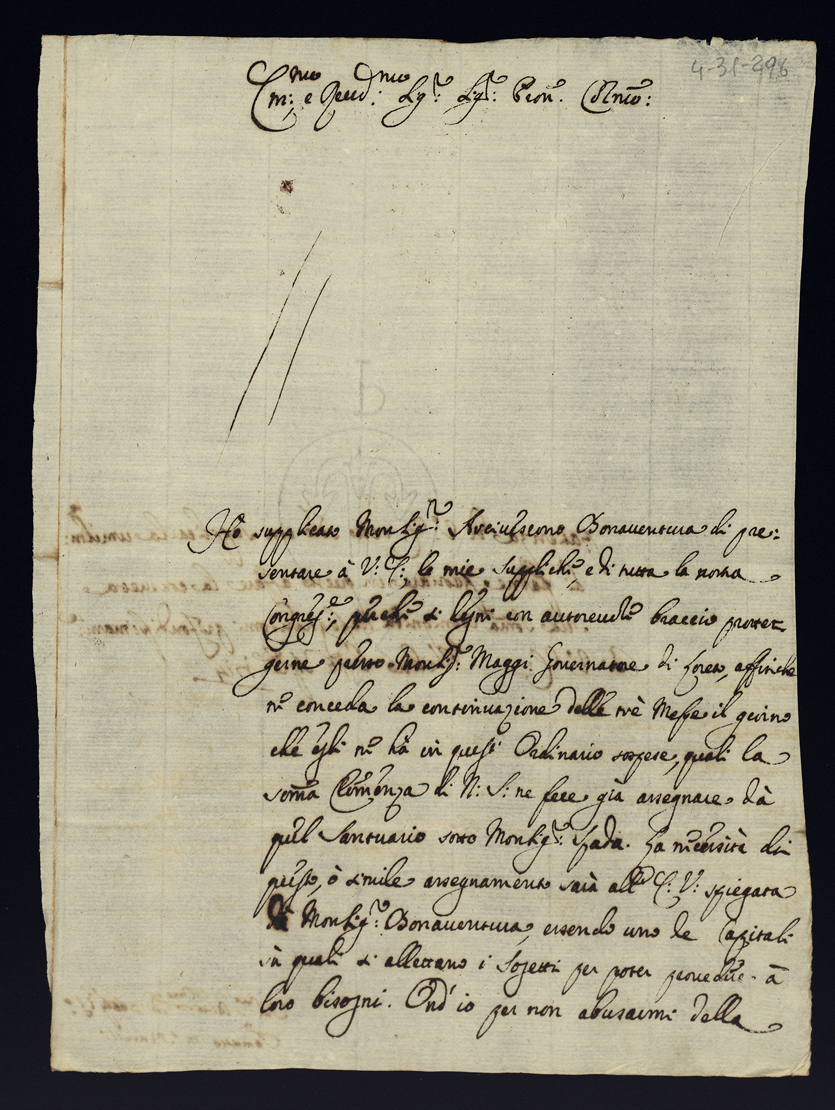 4-31-296
Em:mo e Reud:mo Sig.r Sig.r Pron. Colmo:
Hò supplicato Monsig.r Arciuescouo Bonauentura di pre:
sentare à V: E: le mie suppliche, e di tutta la nostra
Congreg.e, perche si degni con autoreuole braccio proteg=
gerne presso Monsig.r Maggi Gouernatore di Loreto, affinche
ne conceda la continuazione delle trè Messe il giorno
che egli ne hà in questo Ordinario sospese, quali la
somma Clemenza di N: S: ne fece già assegnare dà
quel Santuario sotto Monsig.r Spada. La necessità di
questo, ò simile assegnamento sarà all' E: V: spiegata
dà Monsig.r Bonauentura, essendo uno de Capitali
in quali si allettano i Sogetti per poter prouedere à
loro bisogni. Ond' io per non abusarmi della